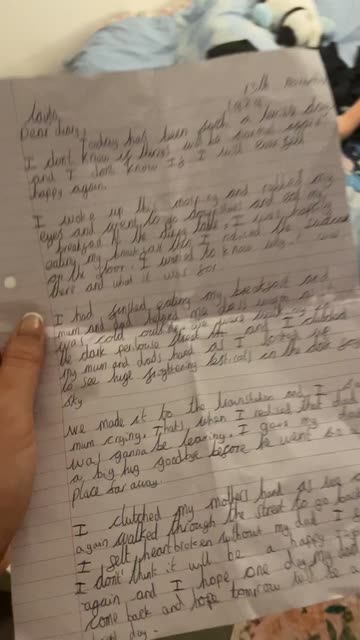 12th November
Dear diary,
Today has been such a horrible day
I don't know if things will be sorted again
and I don't know if I will ever feel
happy again.
I woke up this morning and rubbed my
eyes and went to go downstairs and eat my
breakfast at the table. I was happily
eating my breakfast then I noticed the suitcase
on the floor. I wanted to know why it was
there and what it was for.
I had finished eating my breakfast and
mum and dad helped me
was cold outside. We were walking
the dark street and I clutched
my mum and dads hand as I looked up
to see huge frightening in the dark
sky
We made it to the and I
mum crying. That's when I noticed that dad
was gonna be leaving. I gave my dad
a big hug goodbye before he went to a
place far away.
I clutched my mothers hand as we
again walked through the street to go
I felt heartbroken without my dad. I
I don't think it will be a happy
again and I hope one day my dad
come back and hope tomorrow will be a
day.